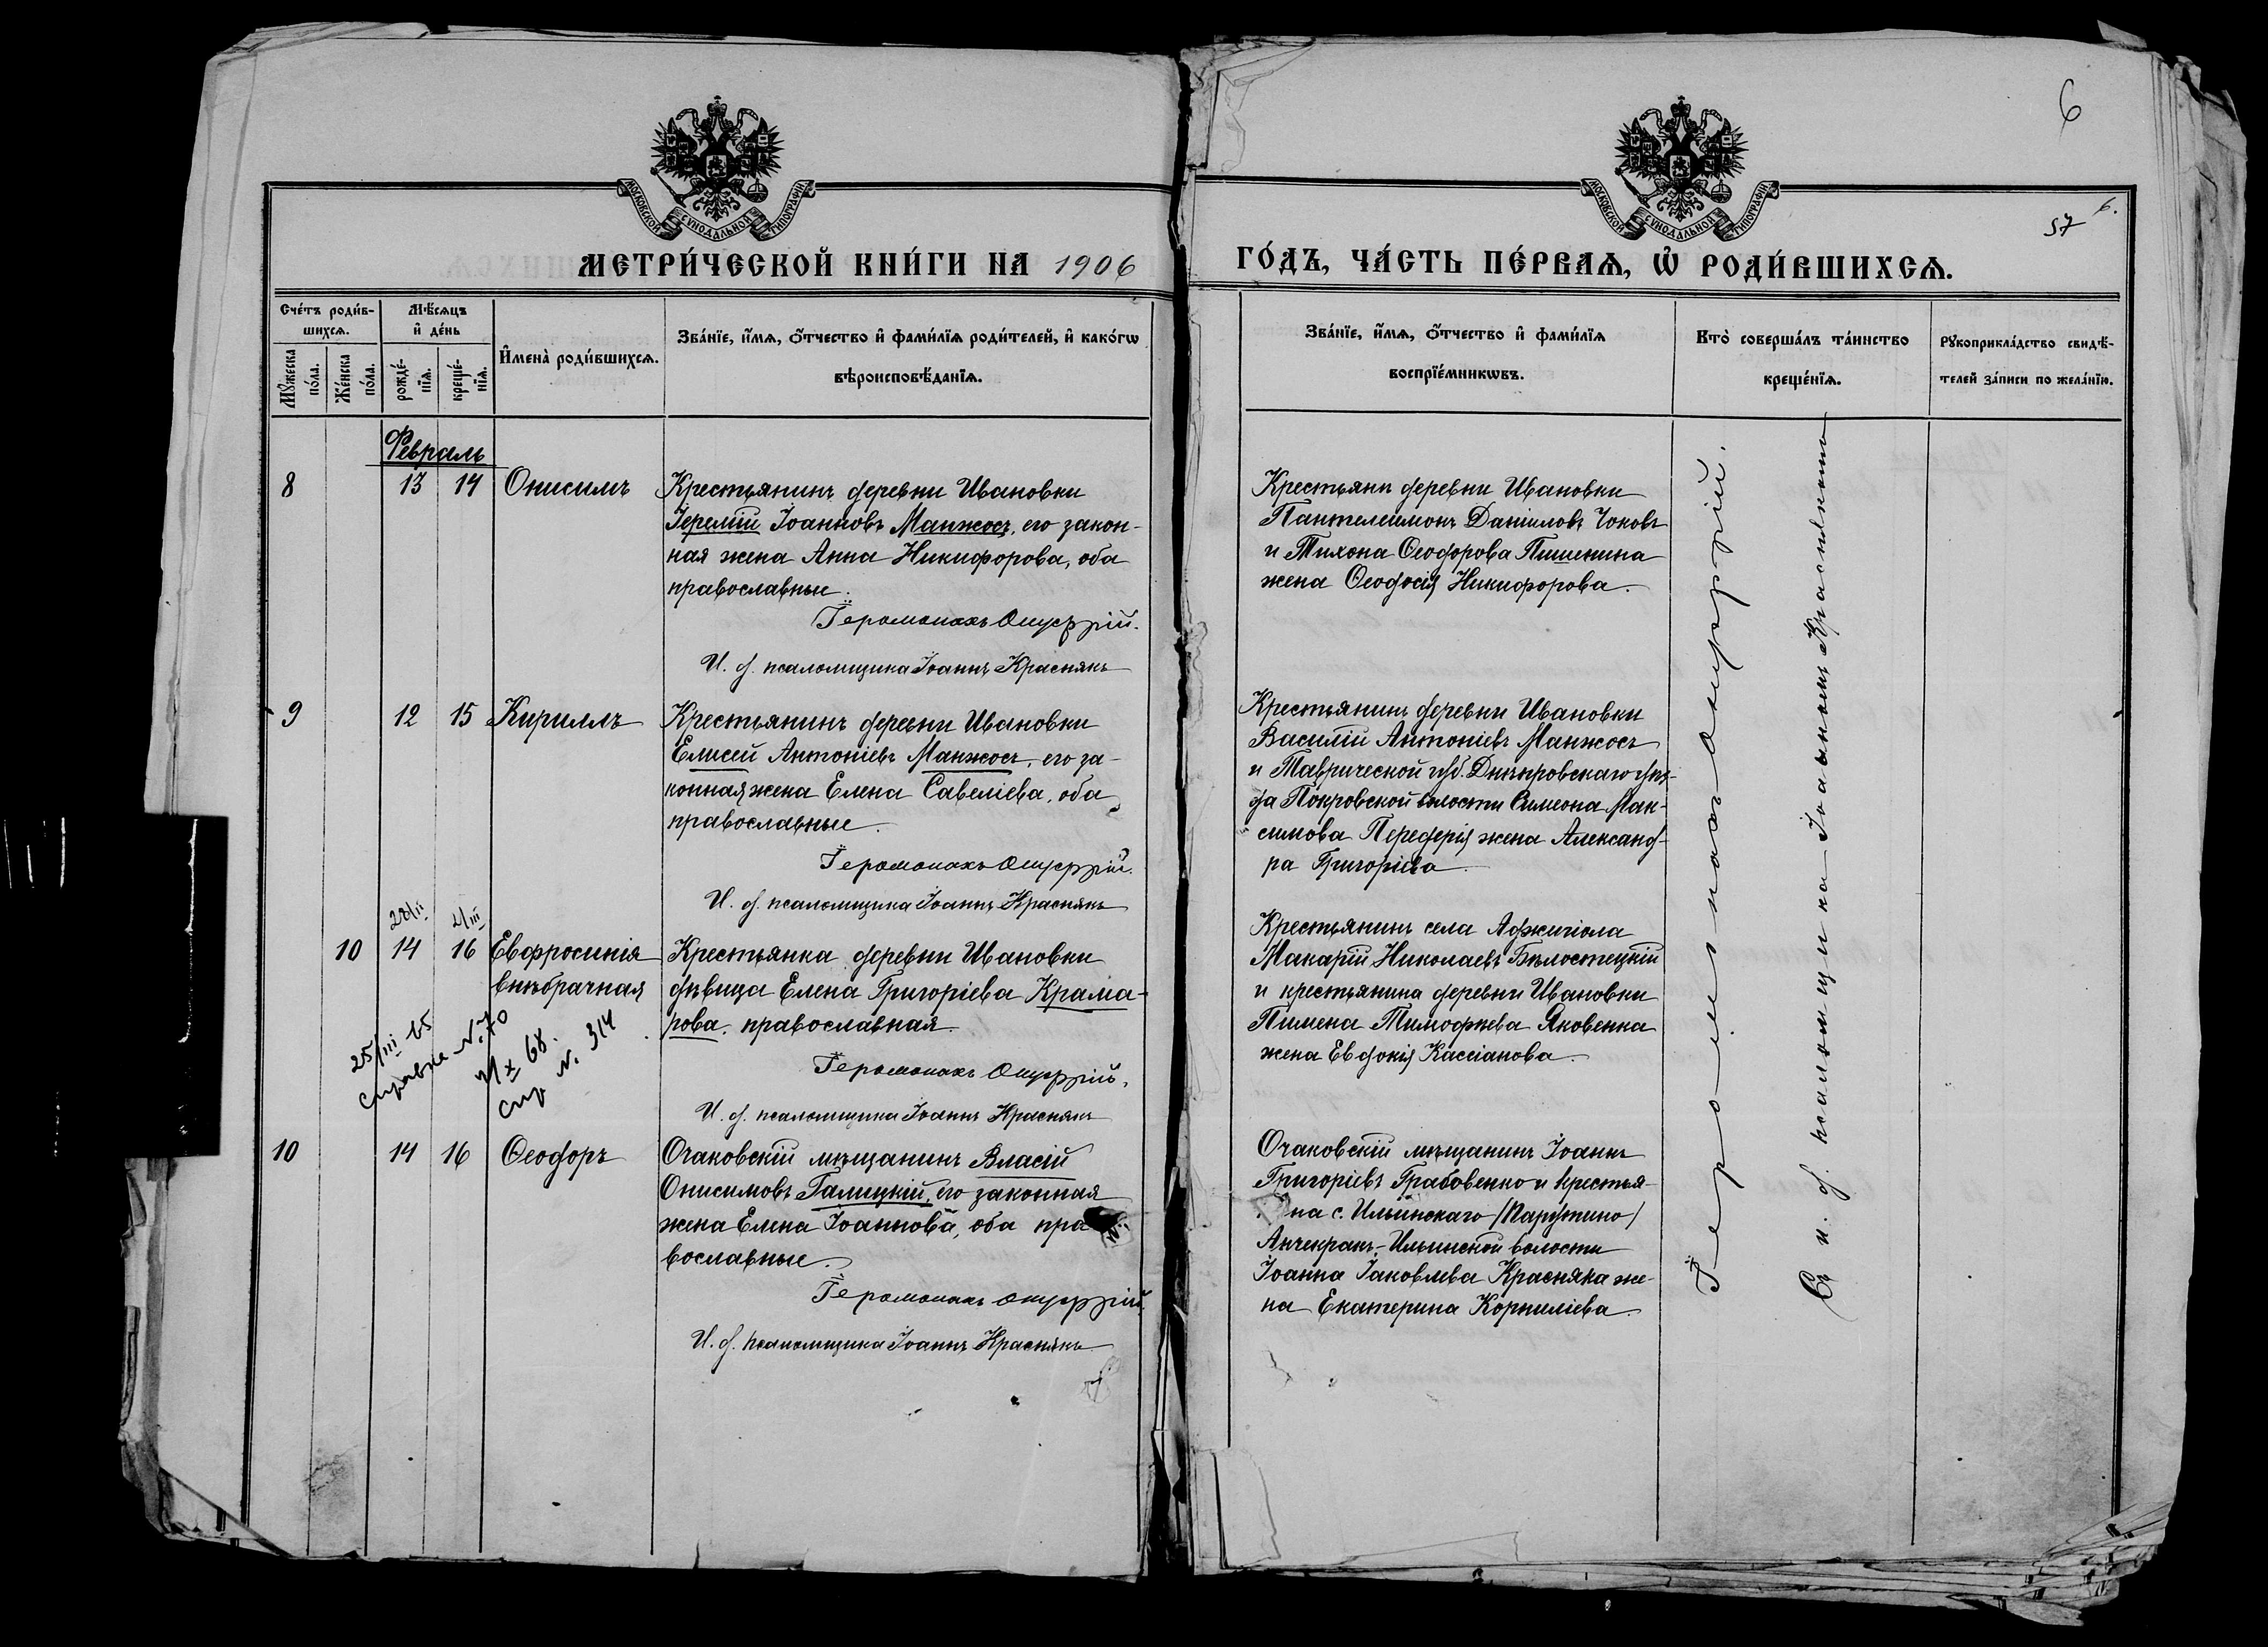 6
57 6.
МОСКОВСКОЙ СѴНОДАЛЬНОЙ ТИПОГРАФІИ
МОСКОВСКОЙ СѴНОДАЛЬНОЙ ТИПОГРАФІИ
МЕТРИ́ЧЕСКОЙ КНИ́ГИ НА 1906
ГО́ДЪ, ЧА́СТЬ ПЕ́РВАѦ, Ѡ҆ РОДИ́ВШИХСѦ.
Сче́тъ роди́в-
шихсѧ.
Мꙋ́жеска
по́ла.
Же́нска
по́ла.
Мѣ́сѧцъ
и҆ де́нь
рожде́-
нїѧ.
креще́-
нїѧ.
И҆мена̀ роди́вшихсѧ.
Зва́нїе, и҆́мѧ, ѻ҆́тчество и҆ фами́лїѧ роди́телей, и҆ како́гѡ
вѣроисповѣ́данїѧ.
Зва́нїе, и҆́мѧ, ѻ҆́тчество и҆ фами́лїѧ
воспрїе́мникѡвъ.
Кто̀ соверша́лъ та́инство
креще́нїѧ.
Рꙋкоприкла́дство свидѣ́-
телей за́писи по жела́нїю.
Февраль
8 13 14 Онисимъ
Крестьянинъ деревни Ивановки
Іеремій Іоанновъ Манжосъ, его закон-
ная жена Анна Никифорова, оба
православные.
Іеромонахъ Онуфрій.
И. д. псаломщика Іоаннъ Краснякъ
Крестьяни деревни Ивановки
Пантелеимонъ Даніиловъ Чоковъ
и Тихона Ѳеодорова Пишенина
жена Ѳеодосія Никифорова.
9 12 15 Кириллъ
Крестьянинъ деревни Ивановки
Елисей Антоніевъ Манжосъ, его за-
конная жена Елена Савеліева, оба
православные.
Іеромонахъ Онуфрій.
И. д. псаломщика Іоаннъ Краснякъ
Крестьянинъ деревни Ивановки
Василій Антоніевъ Манжосъ
и Таврической губ. Днѣпровскаго уѣз-
да Покровской волости Симеона Мак-
симова Передерія жена Александ-
ра Григоріева.
28/II 2/III
10 14 16 Евфросинія
внѣбрачная
Крестьянка деревни Ивановки
дѣвица Елена Григоріева Крама-
рова, православная.
Іеромонахъ Онуфрій.
И. д. псаломщика Іоаннъ Краснякъ
25/III 65
справка № 70
X 68.
спр № 314
Крестьянинъ села Аджигіола
Макарій Николаевъ Бѣлостецкій
и крестьянина деревни Ивановки
Пимена Тимофѣева Яковенка
жена Евдокія Кассіанова.
10 14 16 Ѳеодоръ
Очаковскій мѣщанинъ Власій
Онисимовъ Галицкій, его законная
жена Елена Іоаннова, оба пра
вославные.
Іеромонахъ Онуфрій.
И. д. псаломщика Іоаннъ Краснякъ
Очаковскій мѣщанинъ Іоаннъ
Григоріевъ Грабовенко и крестья-
на с. Ильинскаго /Парутино/
Анчекракъ-Ильинской волости
Іоанна Іаковлева Красняка же-
на Екатерина Корниліева.
Іеромонахъ Онуфрій.
Съ и. д. псаломщика Іоанномъ Краснякомъ